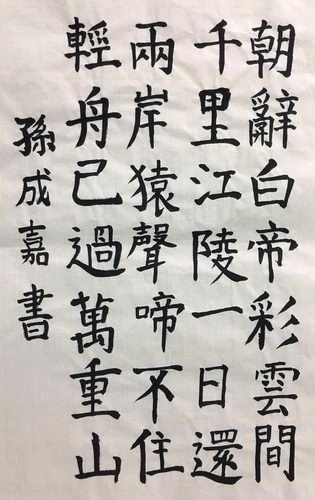 朝辭白帝彩雲間
千里江陵一日還
兩岸猿聲啼不住
輕舟已過萬重山
孫成嘉書